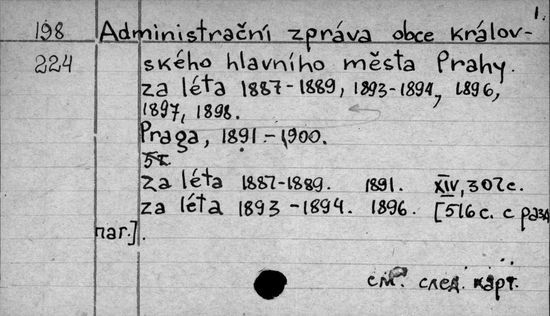 1.
198 Administrační zpráva obce králov-
224 ského hlavního města Prahy.
za léta 1887-1889, 1893-1894, 1896,
1897, 1898.
Praga, 1891.-1900.
5т.
za léta 1887-1889. 1891. XIV, 302с.
za léta 1893-1894. 1896. [516с. с разд.
паг.].
см. след. карт.